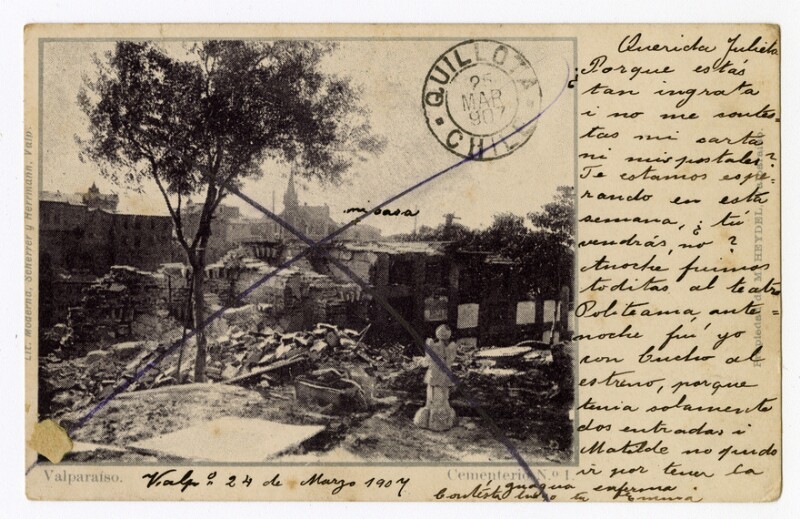 Querida Julieta
¿Porque estás
tan ingrata
i no me contes-
tas mi carta
ni mis postales?
Te estamos espe-
rando en esta
semana, ¿tú
vendrás, no?
Anoche fuimos
toditas al teatro
Politeama, ante-
noche fuí yo
con Cucho al
estreno, porque
tenia solamente
dos entradas i
Matilde no pudo
ir por tener la
guagua enferma.
Contesta luego tu Emma
QUILLOTA
25
MAR
907
CHILE
mi casa
Valparaíso.
Valpº 24 de Marzo 1907
Cementerio N.º 1.
Lit. Moderna, Scherrer y Herrmann, Valp.